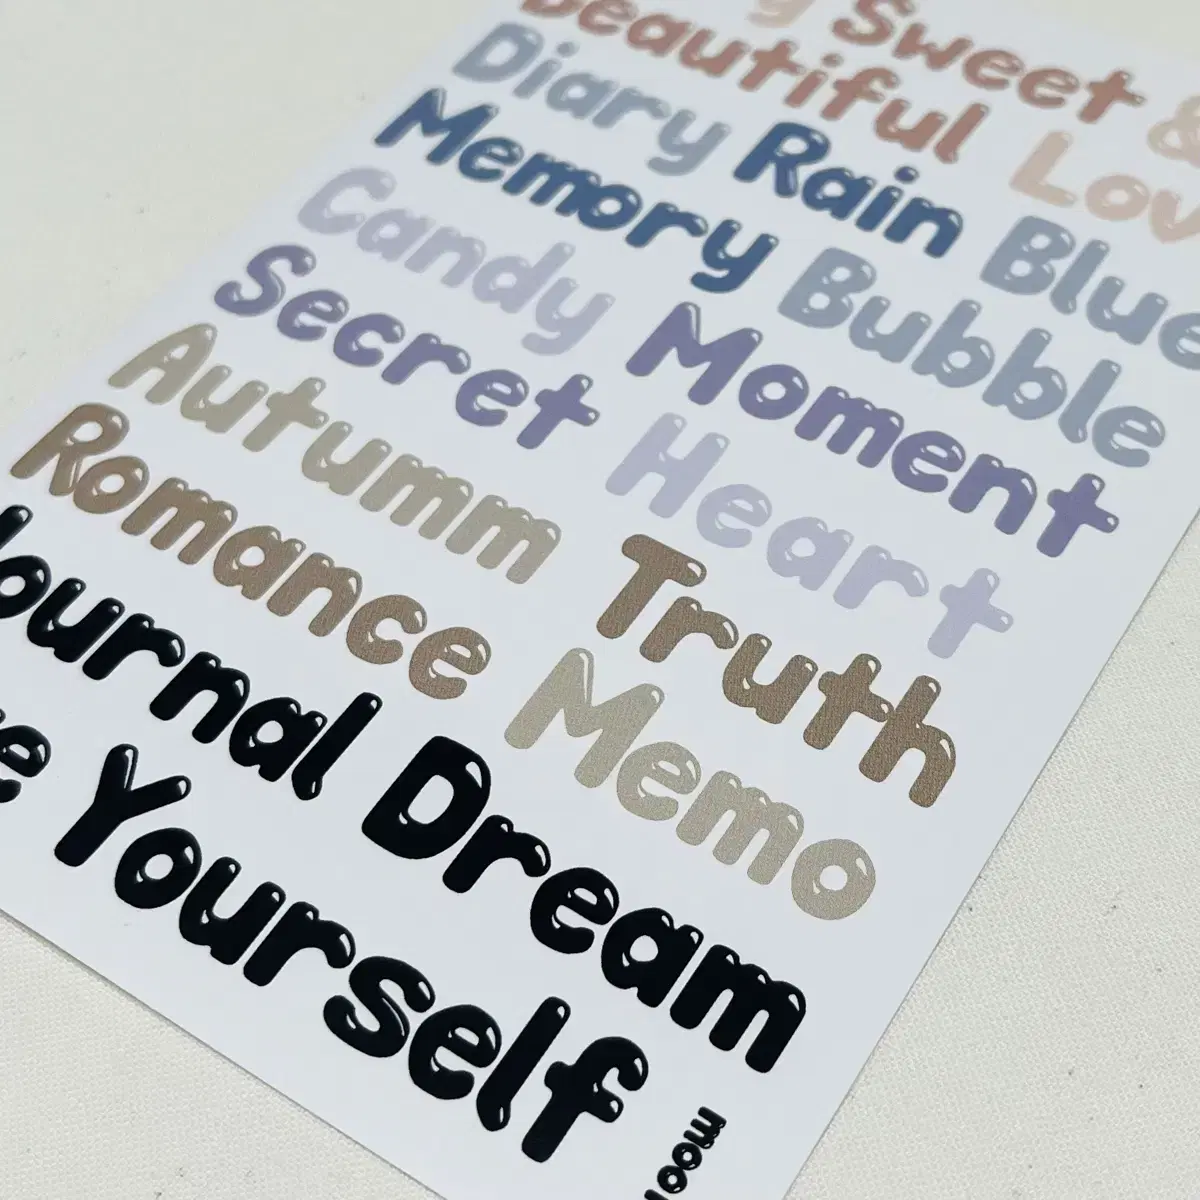 Sweet &
Beautiful
Diary Rain Blue
Memory Bubble
Candy Moment
Secret Heart
Autumm Truth
Romance Memo
Journal Dream
Yourself